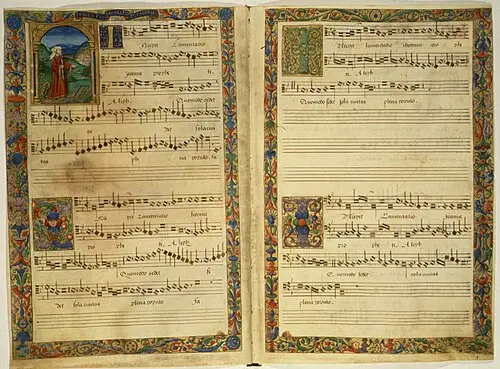 Incipit Lamentatio
Jeremie prophe te
Aleph Quomodo sedet
det sola civi
tas ple na populo
Incipit Lamentatio Jeremie
pro phe te. Aleph
Quomodo sedet
det sola civitas plena populo
Incipit lamentatio pro phe
te. Aleph
Quomodo sedet sola civitas plena populo.
Incipit Lamentatio Jeremie
pro phe te. Aleph
Quomodo sedet sola civitas
plena populo.